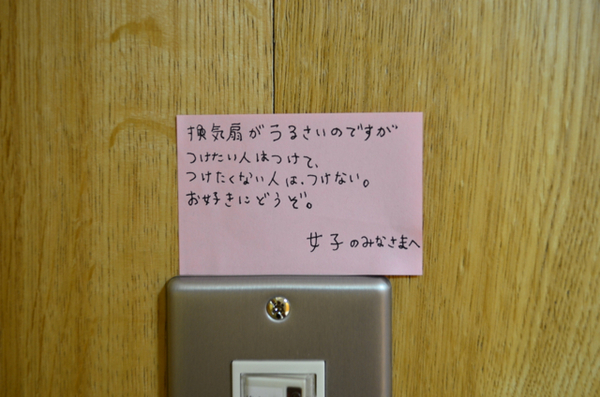 換気扇がうるさいのですが
つけたい人はつけて、
つけたくない人は、つけない。
お好きにどうぞ。
女子のみなさまへ